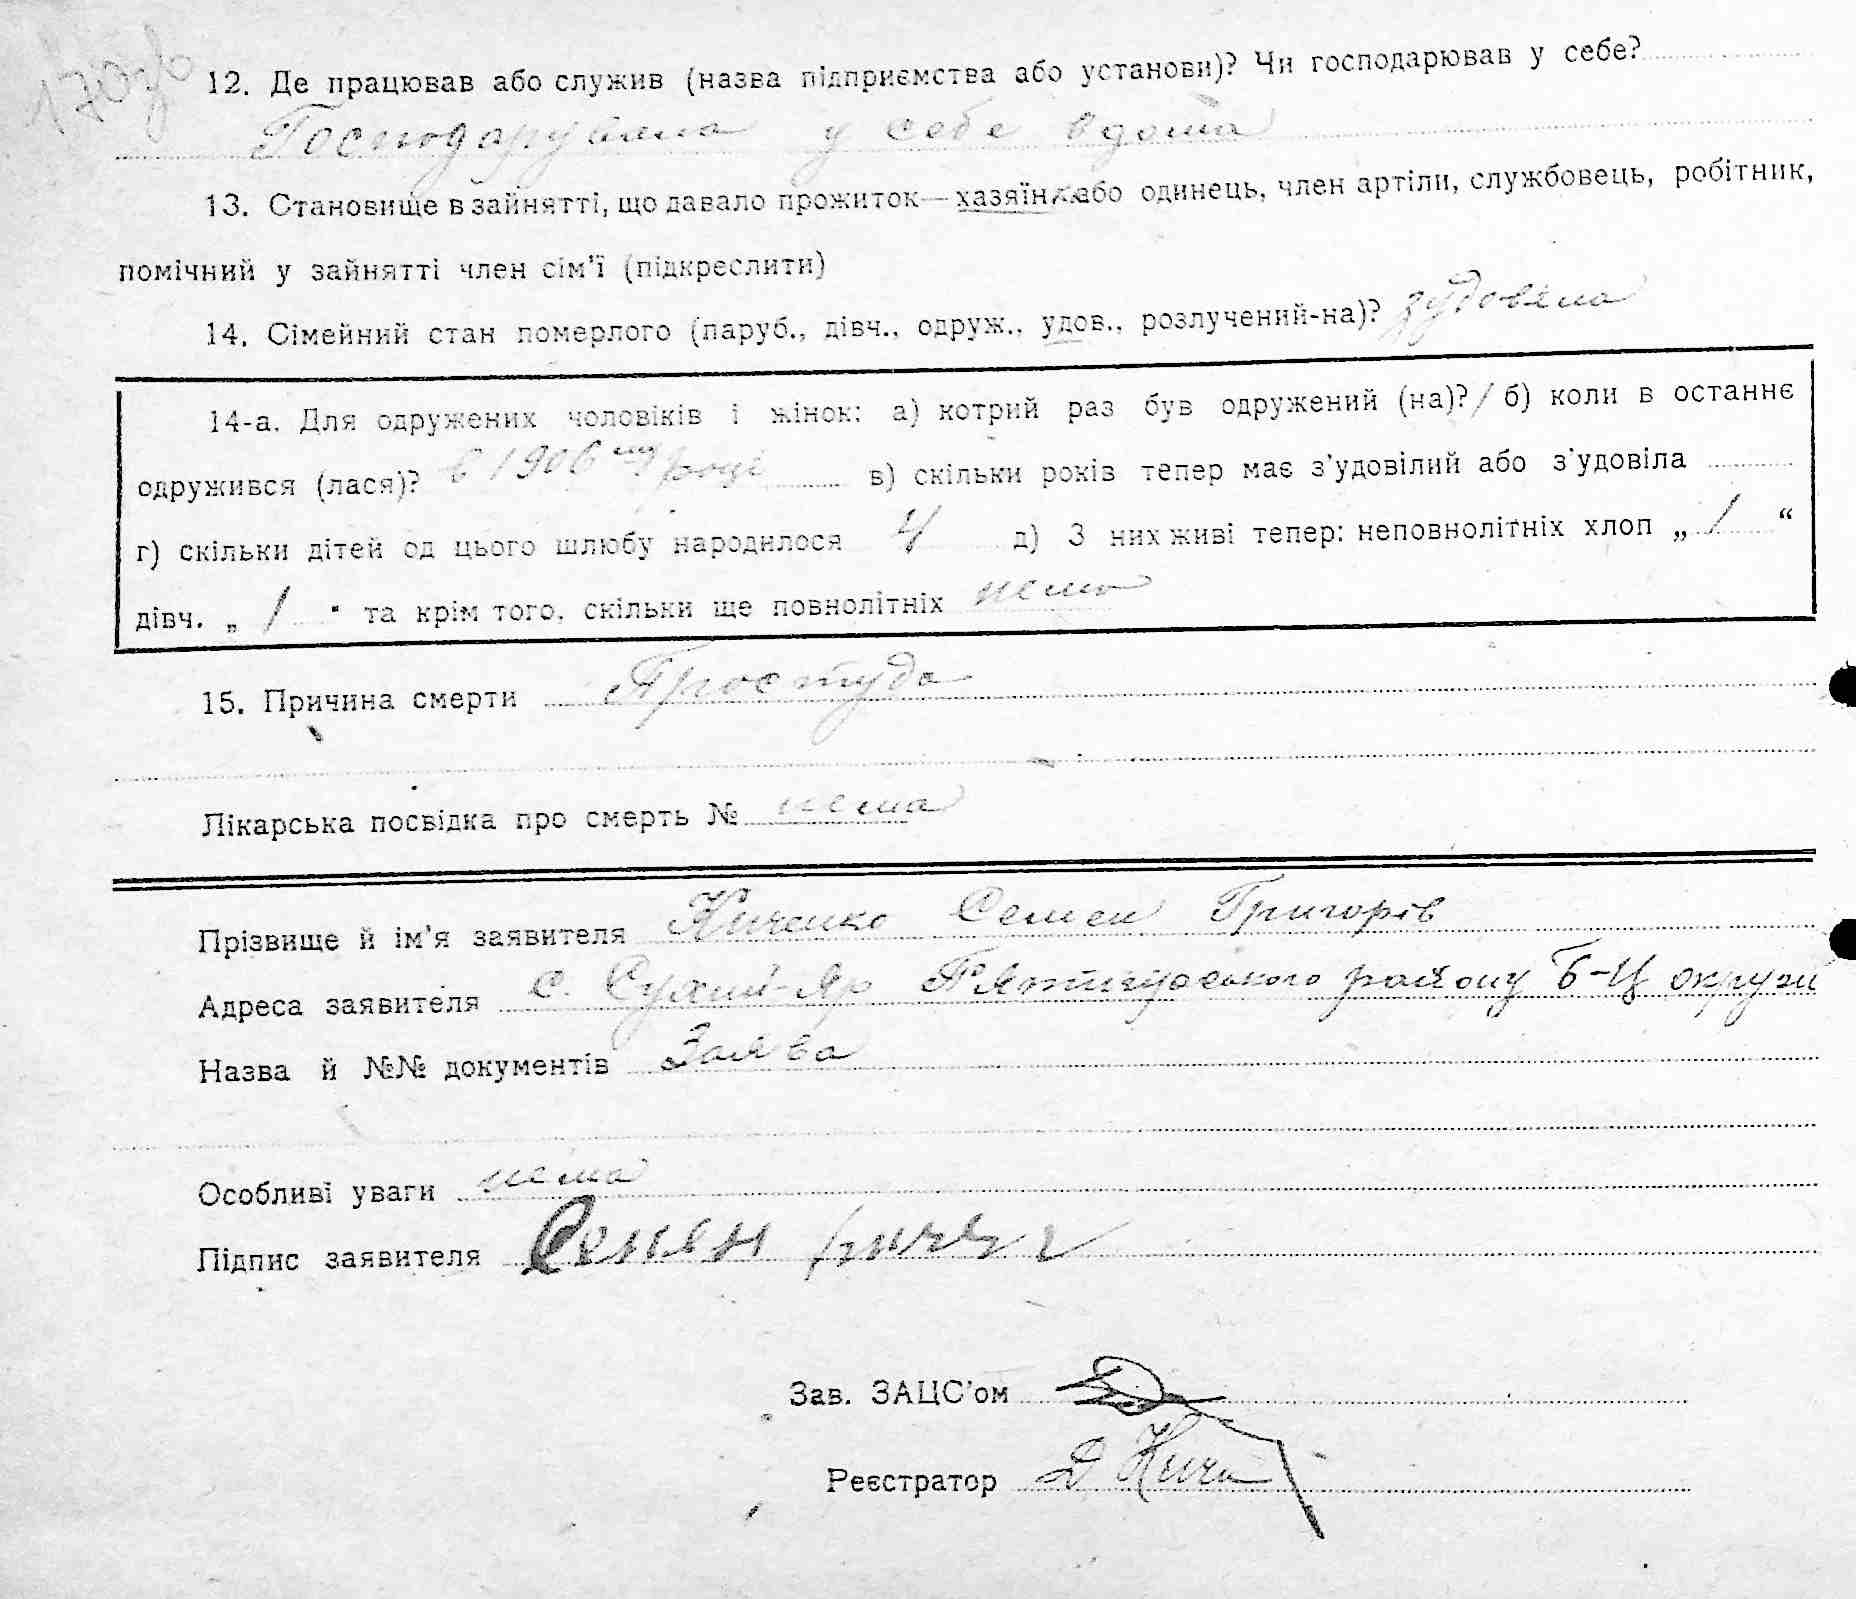 12. Де працював або служив (назва підприємства або установи)? Чи господарював у себе?
Господарувала у себе вдома
13. Становище в зайнятті, що давало прожиток— хазяїн або одинець, член артіли, службовець, робітник,
помічний у зайнятті член сім'ї (підкреслити)
14. Сімейний стан померлого (паруб., дівч., одруж., удов., розлучений-на)? зудовіла
14-а. Для одружених чоловіків і жінок: а) котрий раз був одружений (на)? / б) коли в останнє
одружився (лася)? в 1906 му році в) скільки років тепер має з'удовілий або з'удовіла
г) скільки дітей од цього шлюбу народилося 4 д) З них живі тепер: неповнолітніх хлоп „ 1 “
дівч. „ 1 " та крім того, скільки ще повнолітніх нема
15. Причина смерти Простуда
Лікарська посвідка про смерть № нема
Прізвище й ім'я заявителя Киченко Семен Григорів
Адреса заявителя с. Сухий-Яр П'ятигорського району Б-Ц округи
Назва й №№ документів Заява
Особливі уваги нема
Підпис заявителя Семен
Зав. ЗАЦС'ом
Реєстратор Д Кич